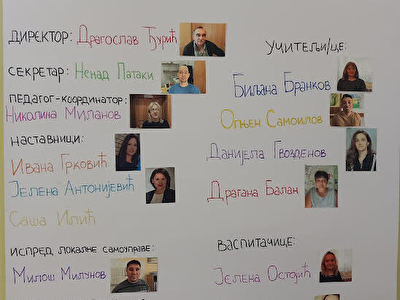 ДИРЕКТОР: Драгослав Ђурић
СЕКРЕТАР: Ненад Патаки
ПЕДАГОГ-КООРДИНАТОР:
Николина Миланов
НАСТАВНИЦИ:
Ивана Грковић
Јелена Антонијевић
Саша Илић
ИСПРЕД ЛОКАЛНЕ САМОУПРАВЕ:
Милош Милунов
УЧИТЕЉИ/ЦЕ:
Биљана Бранков
Огњен Самоилов
Данијела Гвозденов
Драгана Балан
ВАСПИТАЧИЦЕ:
Јелена Остојић